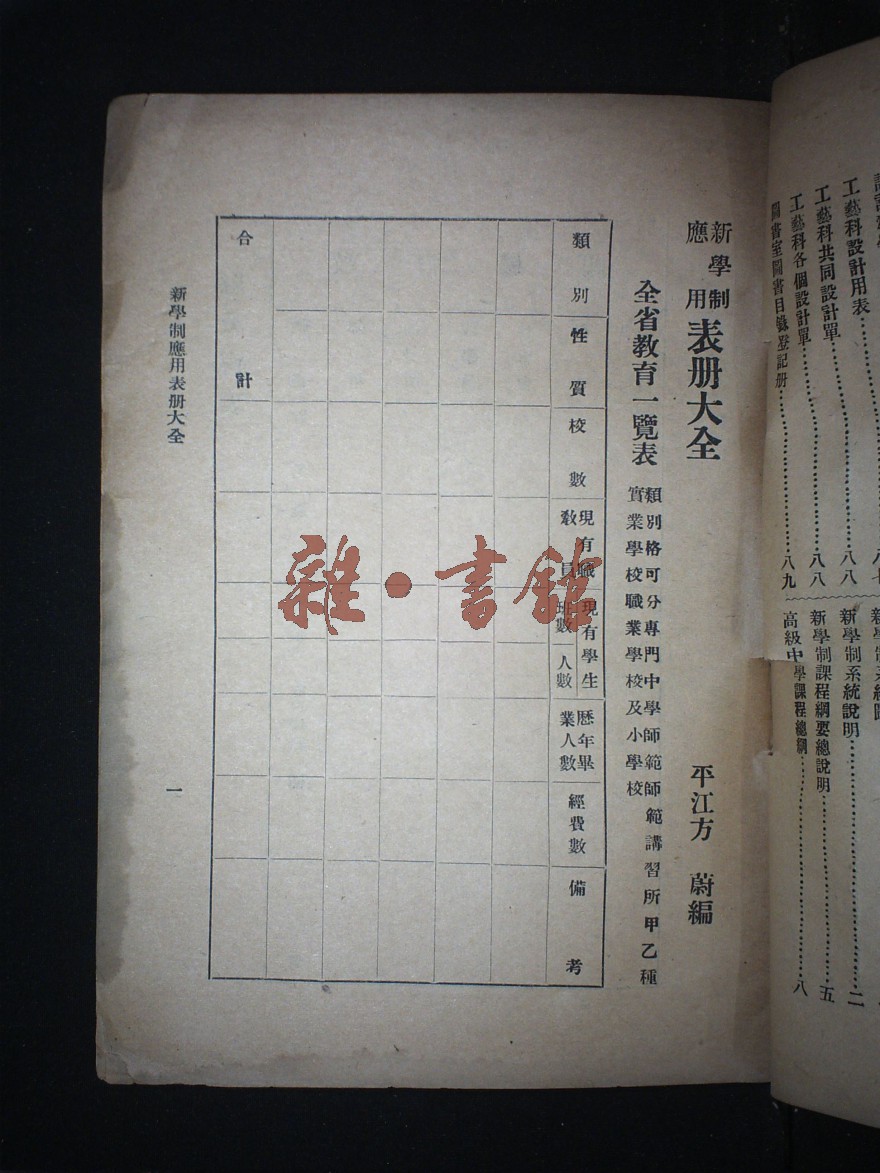 圖書室圖書目錄登記册……八九
工藝科各個設計單……八八
工藝科共同設計單……八八
工藝科設計用表
高級中學課程總綱……八
新學制課程綱要總說明……五
新學制系統說明……二
新學制應用表册大全
平江方 蔚編
全省教育一覽表
類別格可分專門中學師範師範講習所甲乙種
實業學校職業學校及小學校
類別
性質
校數
現有職教員
現有學生
班數
人數
歷年畢業人數
經費數
備考
合計
新學制應用表册大全
一
雜·書館